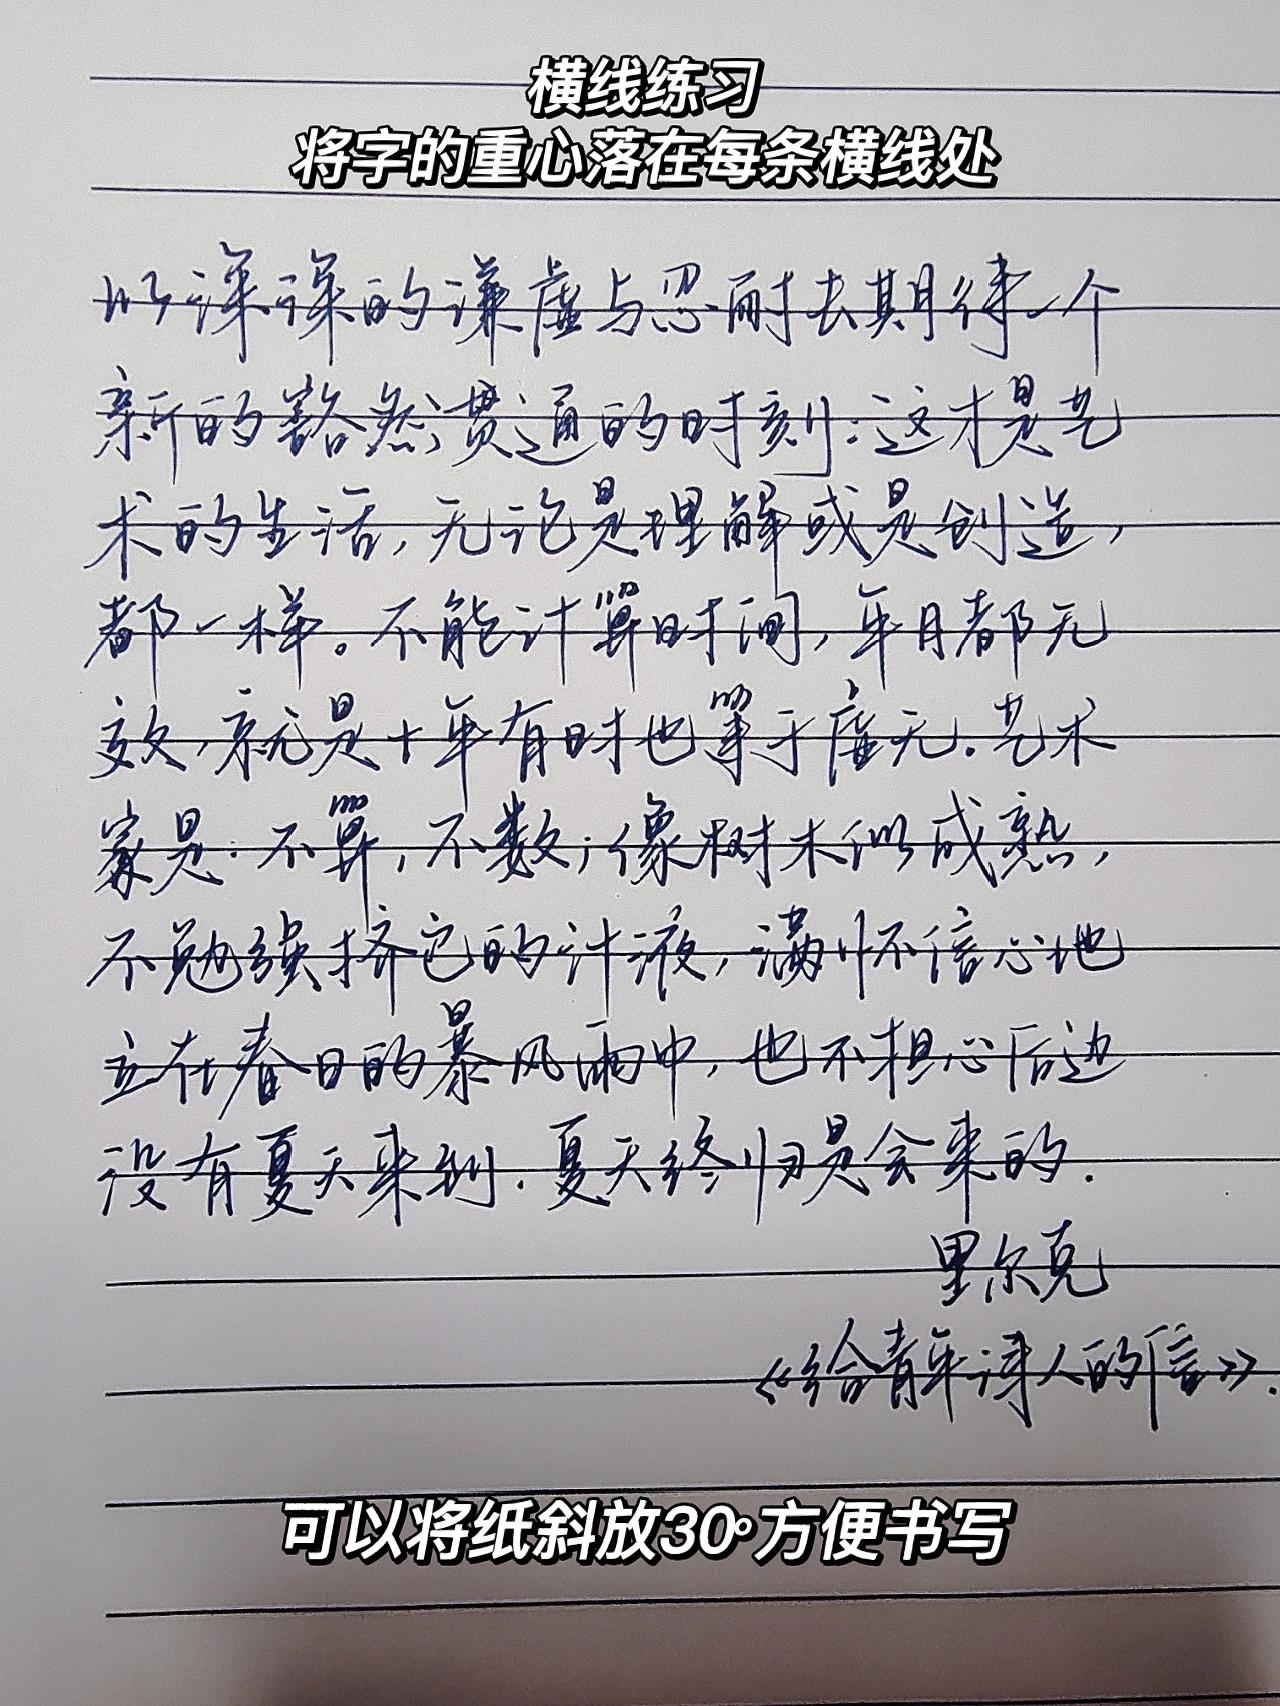 横线练习
将字的重心落在每条横线处
以深深的谦虚与忍耐去期待一个
新的豁然贯通的时刻：这才是艺
术的生活，无论是理解或是创造，
都一样。不能计算时间，年月都无
效，就是十年有时也算于虚无．艺术
家是：不算，不数；像树木似成熟，
不勉强挤它的汁液，满怀信心地
立在春日的暴风雨中，也不担心后边
没有夏天来到．夏天终归是会来的．
里尔克
《给青年诗人的信》．
可以将纸斜放30°方便书写